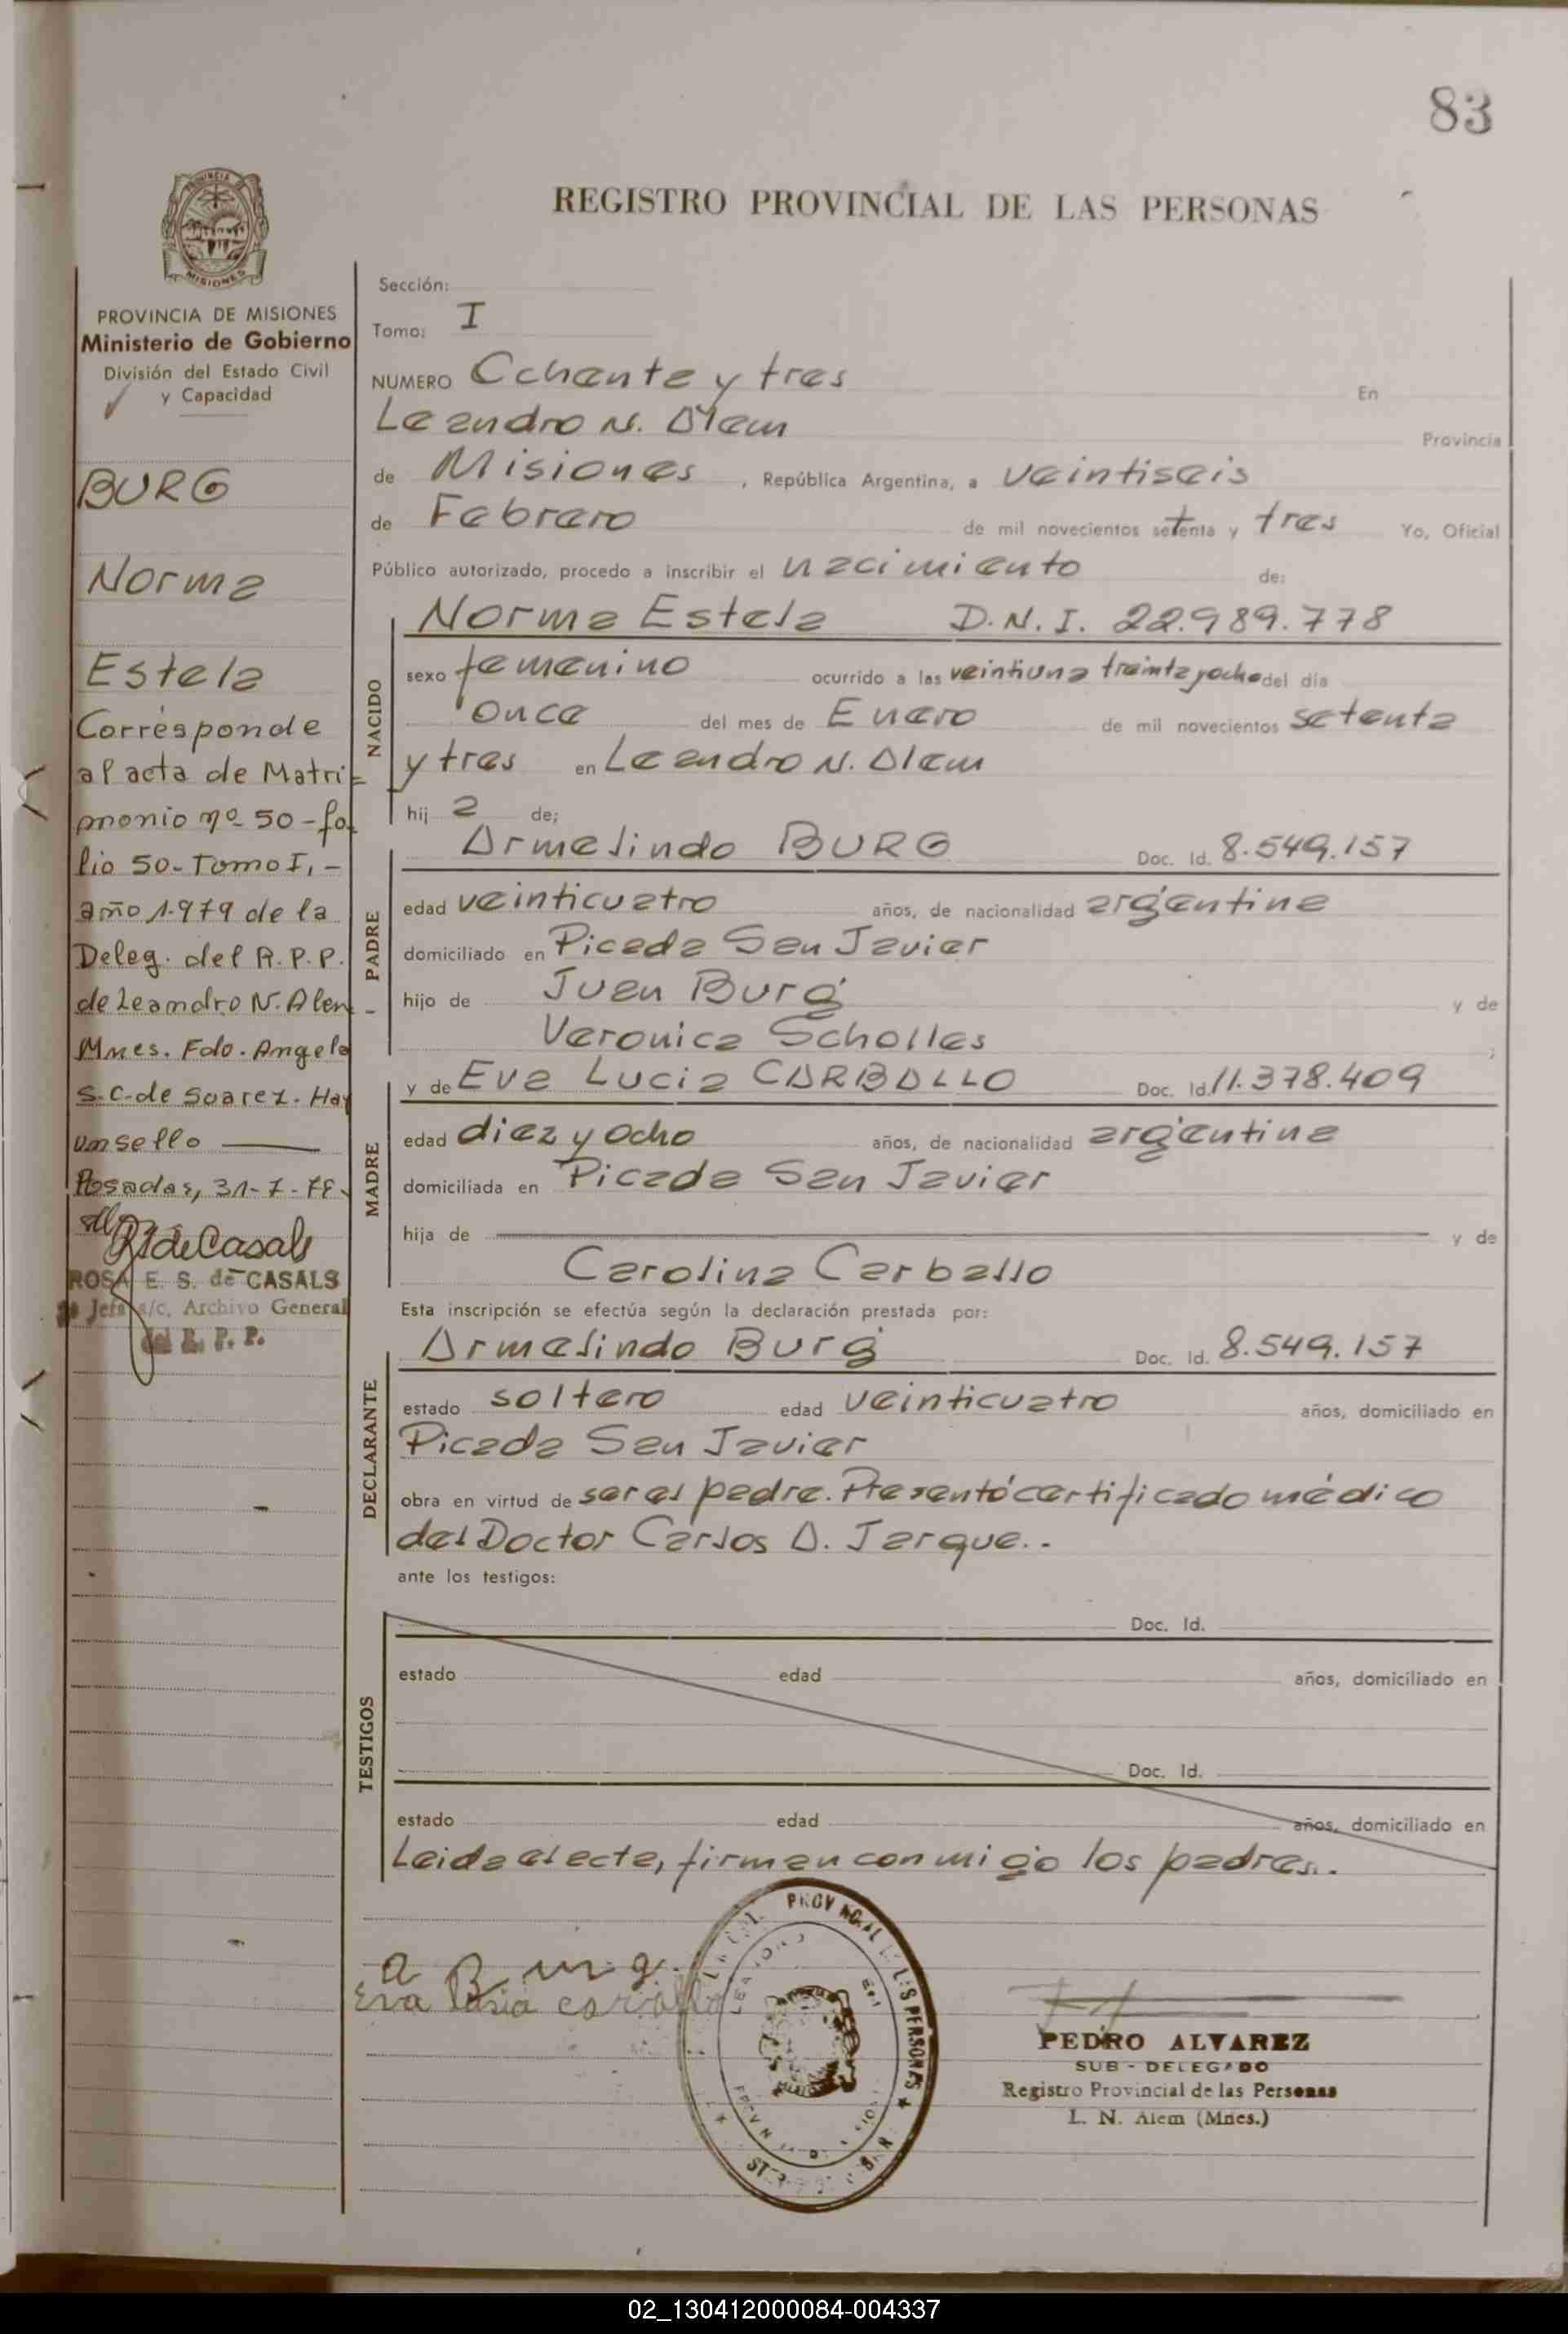 83
REGISTRO PROVINCIAL DE LAS PERSONAS
PROVINCIA DE
MISIONES
PROVINCIA DE MISIONES
Ministerio de Gobierno
División del Estado Civil
y Capacidad
BURG
Norma
Estela
Corresponde
al acta de Matri=
monio nº 50-fo
lio 50-Tomo I,-
año 1.979 de la
Deleg. del R.P.P.
de Leandro N. Alem -
Mnes. Fdo. Angela
S.C. de Suarez. Hay
un sello
Posadas, 31-7-79.
RS de Casals
ROSA E. S. de CASALS
Jefa a/c. Archivo General
del R. P. P.
Sección:
Tomo: I
NUMERO Ochenta y tres En
Leandro N. Alem Provincia
de Misiones, República Argentina, a veintiseis
de Febrero de mil novecientos setenta y tres Yo, Oficial
Público autorizado, procedo a inscribir el nacimiento de:
NACIDO
Norma Estela D.N.I. 22.989.778
sexo femenino ocurrido a las veintiuna treinta y ocho del día
once del mes de Enero de mil novecientos setenta
y tres en Leandro N. Alem
hij a de;
PADRE
Armelindo BURG Doc. Id. 8.549.157
edad veinticuatro años, de nacionalidad argentina
domiciliado en Picada San Javier
hijo de Juan Burg y de
Veronica Scholles ;
MADRE
y de Eva Lucia CARBALLO Doc. Id. 11.378.409
edad diez y ocho años, de nacionalidad argentina
domiciliada en Picada San Javier
hija de y de
Carolina Carballo
Esta inscripción se efectúa según la declaración prestada por:
DECLARANTE
Armelindo Burg Doc. Id. 8.549.157
estado soltero edad veinticuatro años, domiciliado en
Picada San Javier
obra en virtud de ser el padre. Presentó certificado médico
del Doctor Carlos A. Jarque..
ante los testigos:
TESTIGOS
Doc. Id.
estado edad años, domiciliado en
Doc. Id.
estado edad años, domiciliado en
Leida el acta, firman conmigo los padres..
a Burg.
Eva Lusia carballo
PROVINCIAL DE LAS PERSONAS
PEDRO ALVAREZ
SUB - DELEGADO
Registro Provincial de las Personas
L. N. Alem (Mnes.)
02_130412000084-004337